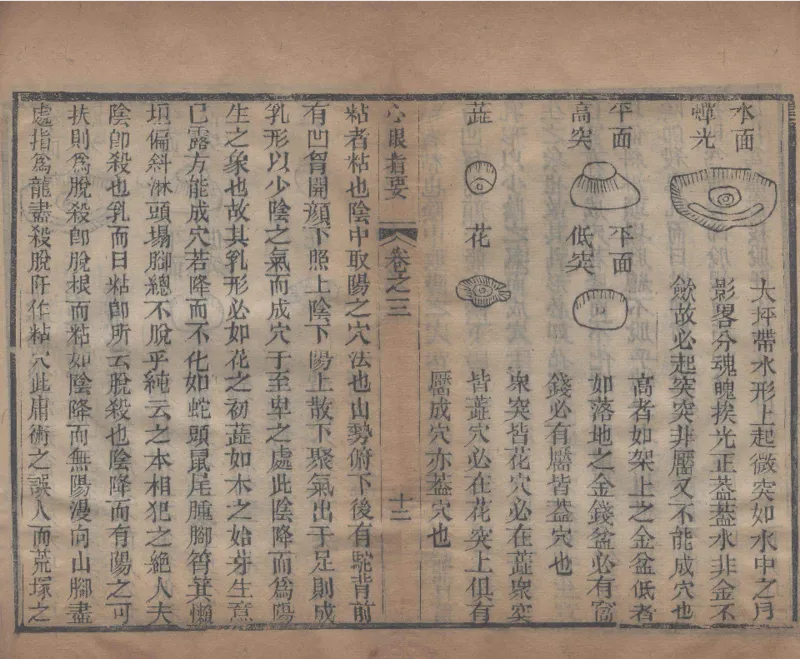 水面
蟬光
大坪帶水形上起微突如水中之月
影畧分魂魄挨光正葢葢水非金不
斂故必起突突非靨又不能成穴也
平面
高突
平面
低突
高者如架上之金盆低者
如落地之金錢盆必有窩
錢必有靨皆葢穴也
蕋
花
衆突皆花穴必在蕋衆突
皆蕋穴必在花突上俱有
靨成穴亦葢穴也
心眼指要 卷之三 十二
粘者粘也陰中取陽之穴法也山勢俯下後有駝背前
有凹胷開顏下照上陰下陽上散下聚氣出于足則成
乳形以少陰之氣而成穴于至卑之處此陰降而爲陽
生之象也故其乳形必如花之初蕋如木之始芽生意
已露方能成穴若降而不化如蛇頭鼠尾腫腳筲箕懶
坦偏斜淋頭塌腳總不脫乎純云之本相犯之絕人夫
陰卽殺也乳而曰粘卽所云脫殺也陰降而有陽之可
扶則爲脫殺卽脫根而粘如陰降而無陽漫向山腳盡
處指爲龍盡殺脫阡作粘穴此庸術之誤人而荒塚之